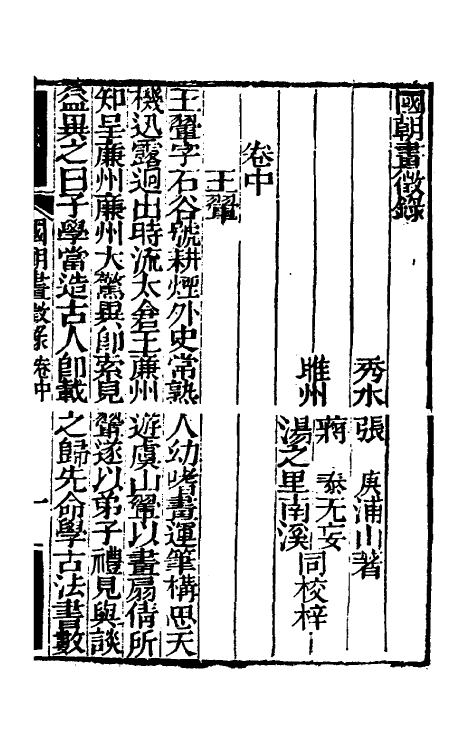 國朝畫徵錄
秀水 張 庚浦山著
睢州 蔣 泰无妄
湯之里南溪 同校梓
卷中
王翬
王翬字石谷號耕煙外史常熟人幼嗜畫運筆構思天
機迅露迥出時流太倉王廉州遊虞山翬以畫扇倩所
知呈廉州廉州大驚異即索見翬遂以弟子禮見與談
益異之曰子學當造古人即載之歸先命學古法書數
國朝畫徵錄 卷中 一